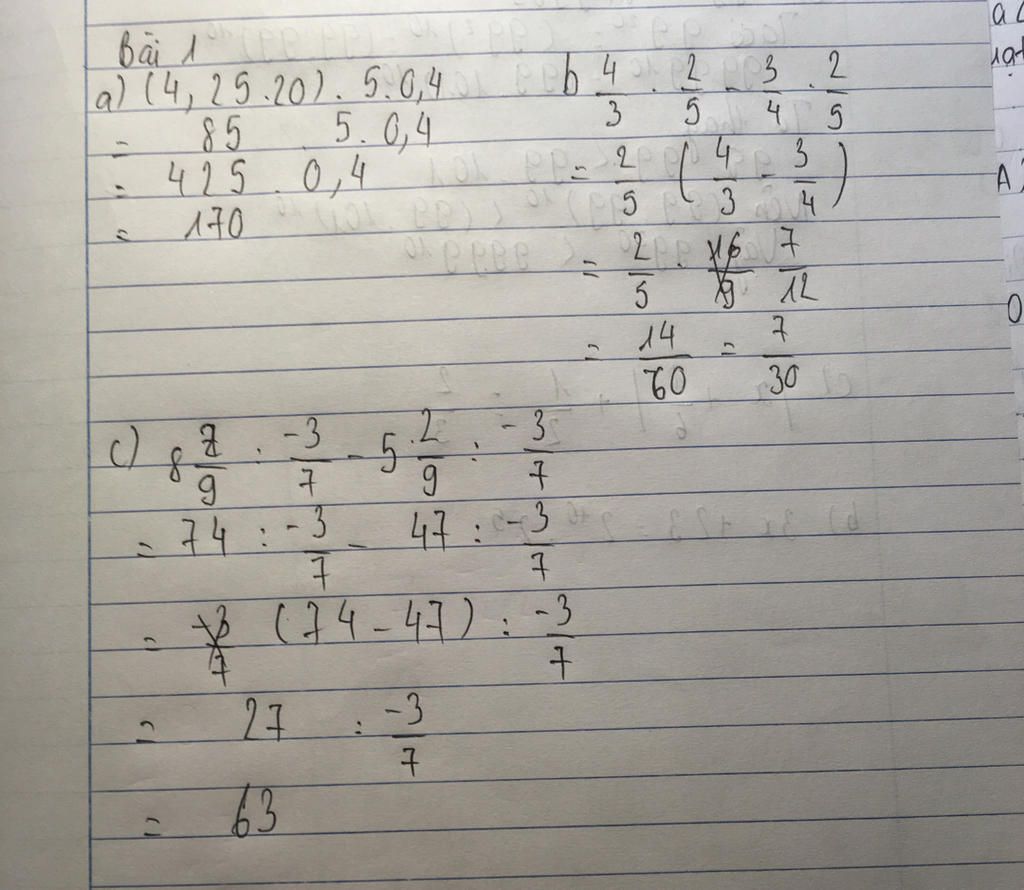 Bài 1
a) (4,25.20).5.0,4
= 85 . 5.0,4
= 425 . 0,4
= 170
b 4/3 . 2/5 - 3/4 . 2/5
= 2/5 (4/3 - 3/4)
= 2/5 . 7/12
= 14/60 = 7/30
c) 8 7/9 : -3/7 - 5 2/9 : -3/7
= 74 : -3/7 - 47 : -3/7
= (74 - 47) : -3/7
= 27 : -3/7
= 63